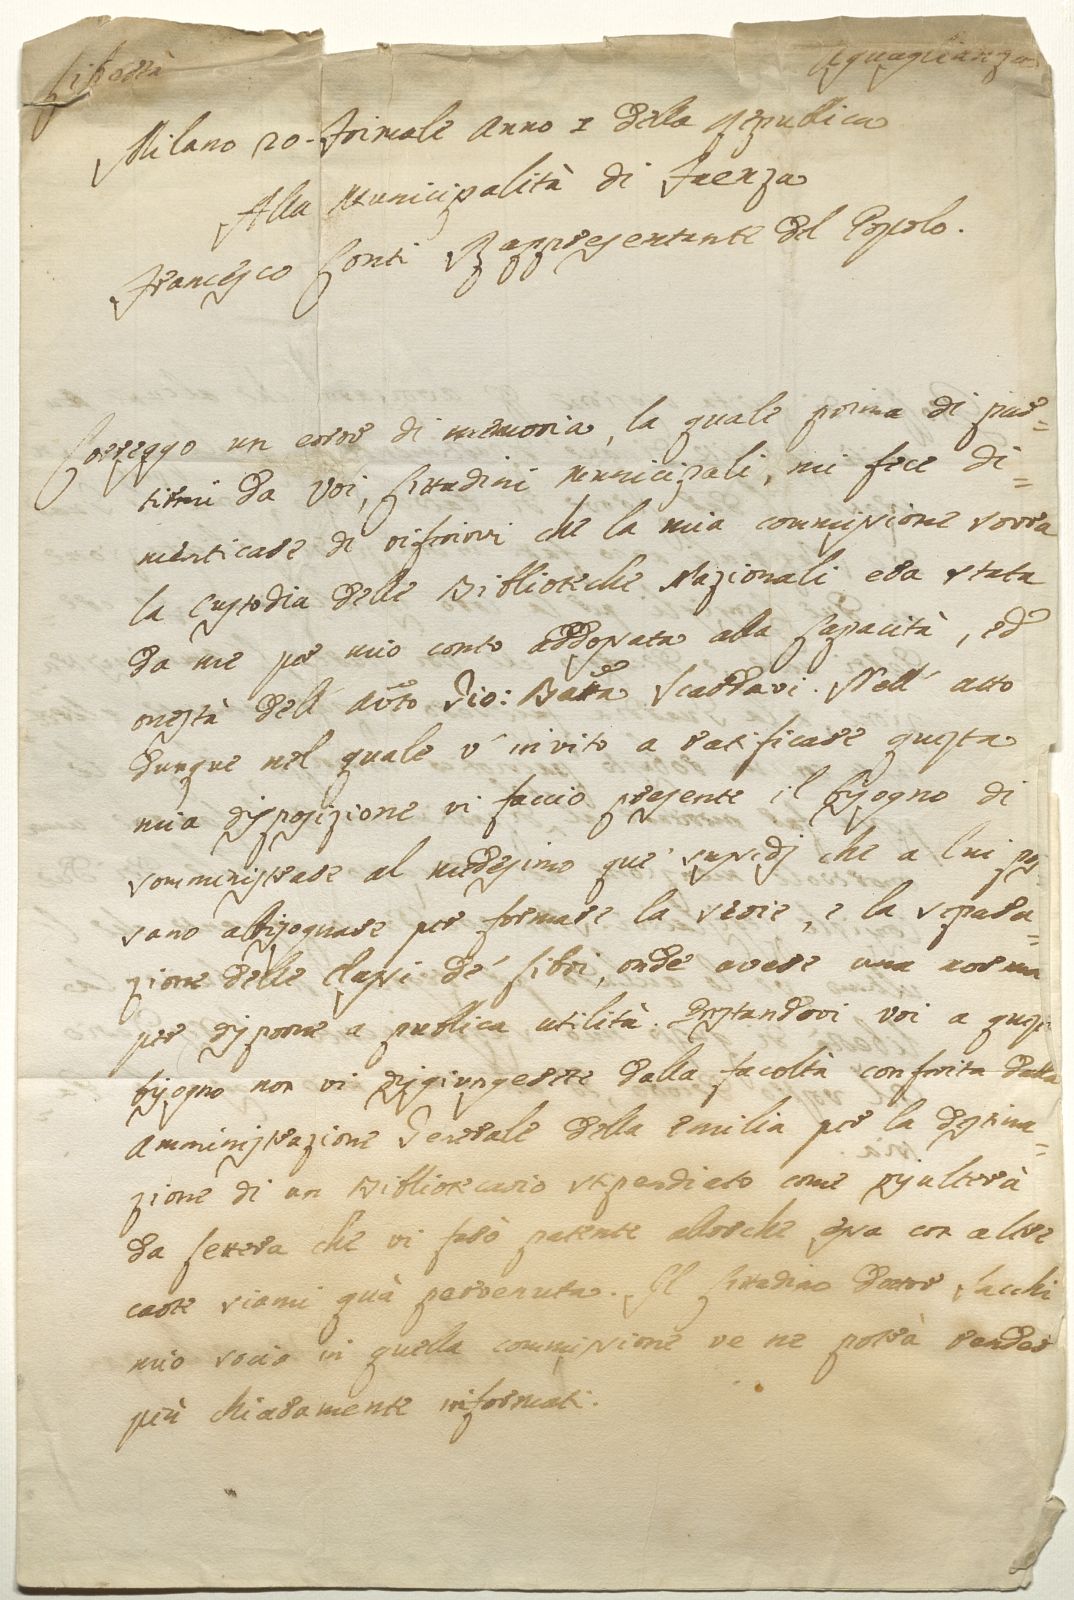 Libertà Eguaglianza
Milano 20. Frimale Anno I della Republica
Alla Municipalità di Faenza
Francesco Conti Rappresentante del Popolo.
Correggo un error di memoria, la quale prima di par=
tirmi da Voi, Cittadini Municipali, mi fece di=
menticare di riferirvi che la mia commissione sovra
la Custodia delle Biblioteche Nazionali era stata
da me per mio conto addossata alla Capacità, ed
onestà dell' Avto Gio: Batta Scardavi. Nell' atto
dunque nel quale v' invito a ratificare questa
mia disposizione vi faccio presente il bisogno di
somministrare al medesimo que' sussidj che a lui pos
sano abbisognare per formare la serie, e la separa=
zione delle Classi de' Libri, onde avere una norma
per disporne a publica utilità. Prestandovi voi a questo
bisogno non vi disgiungerete dalla facoltà conferita dalla
Amministrazione Generale della Emilia per la destina=
zione di un Bibliotecario stipendiato come risulterà
da Lettera che vi farò patente allorche essa con altre
carte siami quà pervenuta. Il Cittadino Dottor Sacchi
mio socio in quella commissione ve ne potrà render
più chiaramente informati.